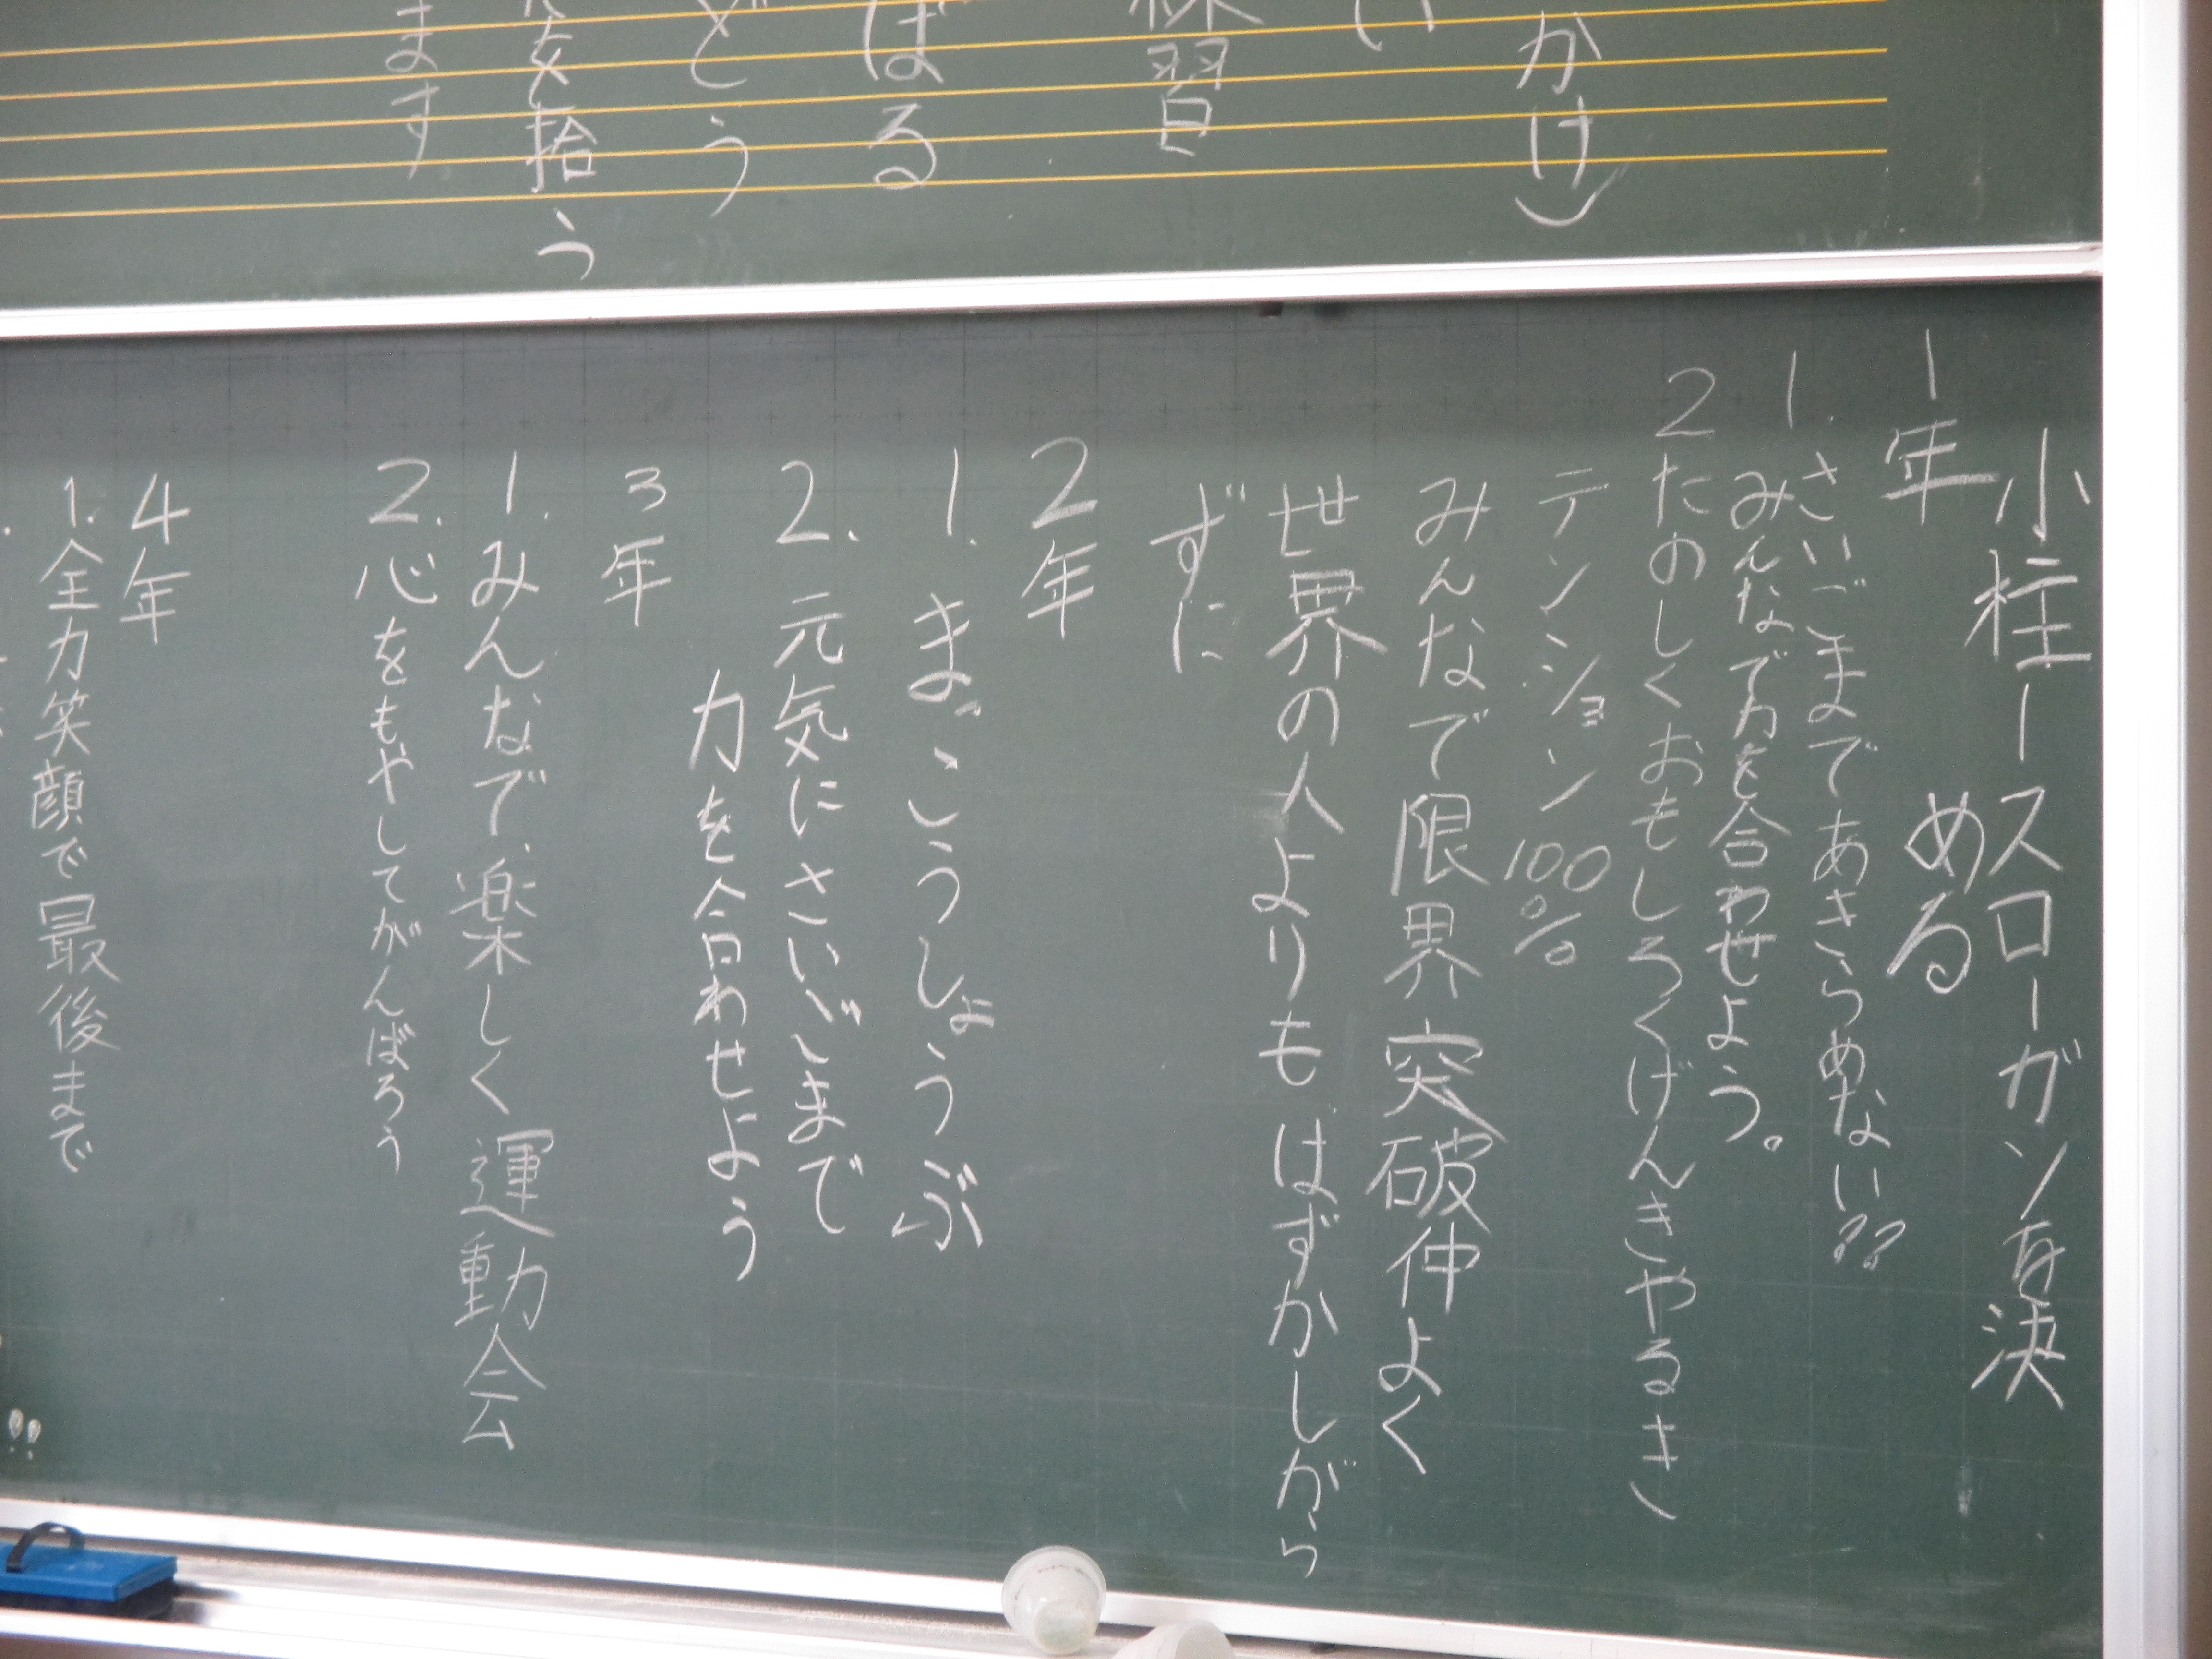 かけ)
練習
ばる
どう
を拾う
ます
小柱ースローガンを決
める
1年
1.さいごまであきらめない??
みんなで力を合わせよう。
2たのしくおもしろくげんきやるき、
テンション100%
みんなで限界突破仲よく
世界の人よりもはずかしがら
ずに
2年
1.まっこうしょうぶ
2.元気にさいごまで
力を合わせよう
3年
1.みんなで、楽しく運動会
2.心をもやしてがんばろう
4年
1.全力笑顔で最後まで
!!